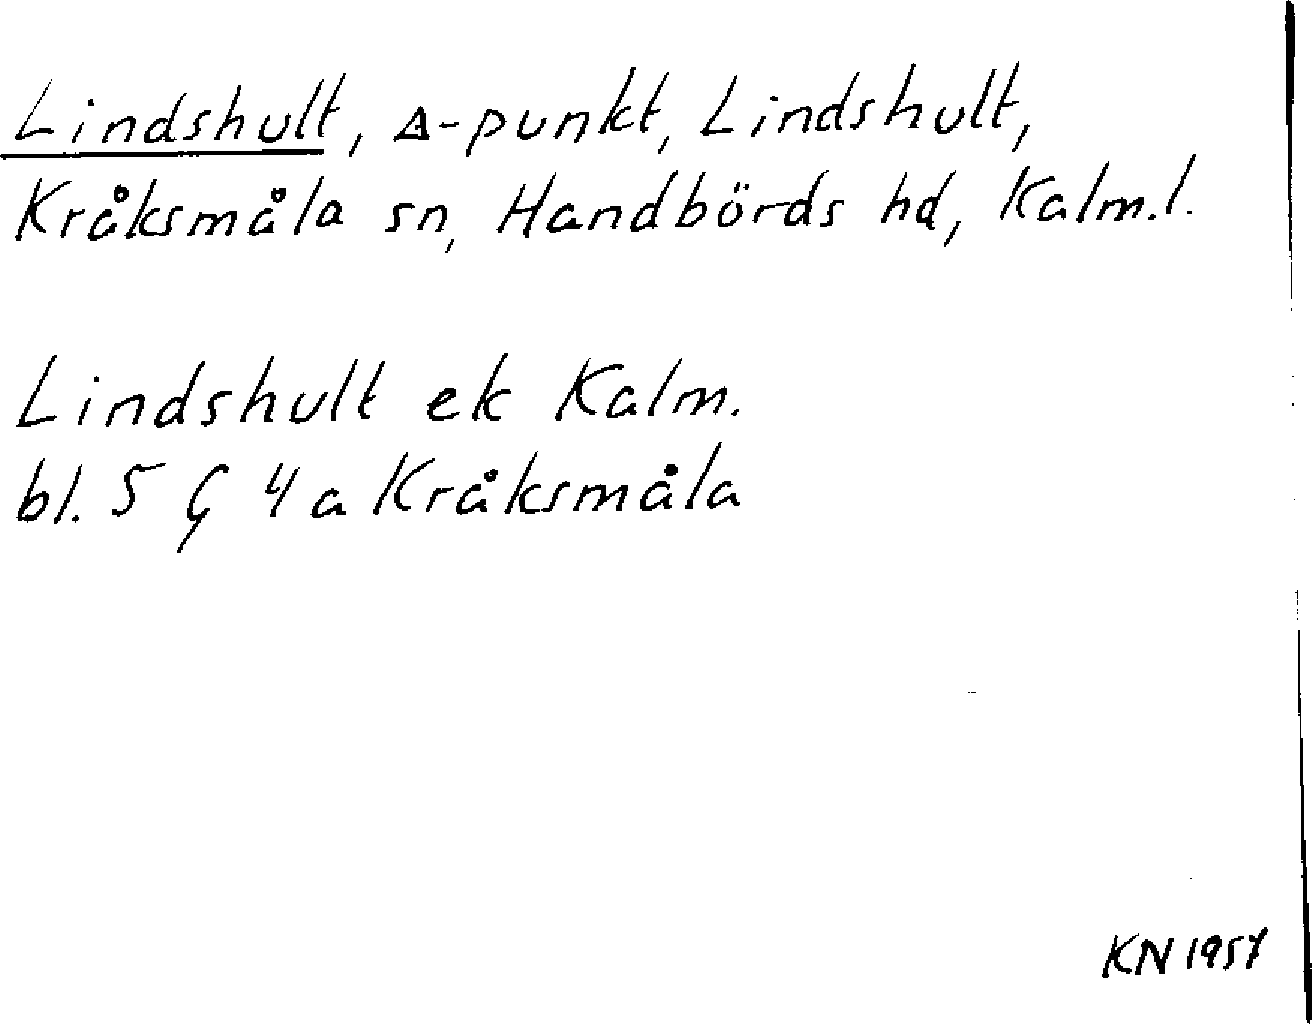 Lindshult, Δ-punkt, Lindshult,
Kråksmåla sn, Handbörds hd, Kalm.l.
Lindshult ek Kalm.
bl. 5 G 4 a Kråksmåla
KN 1957